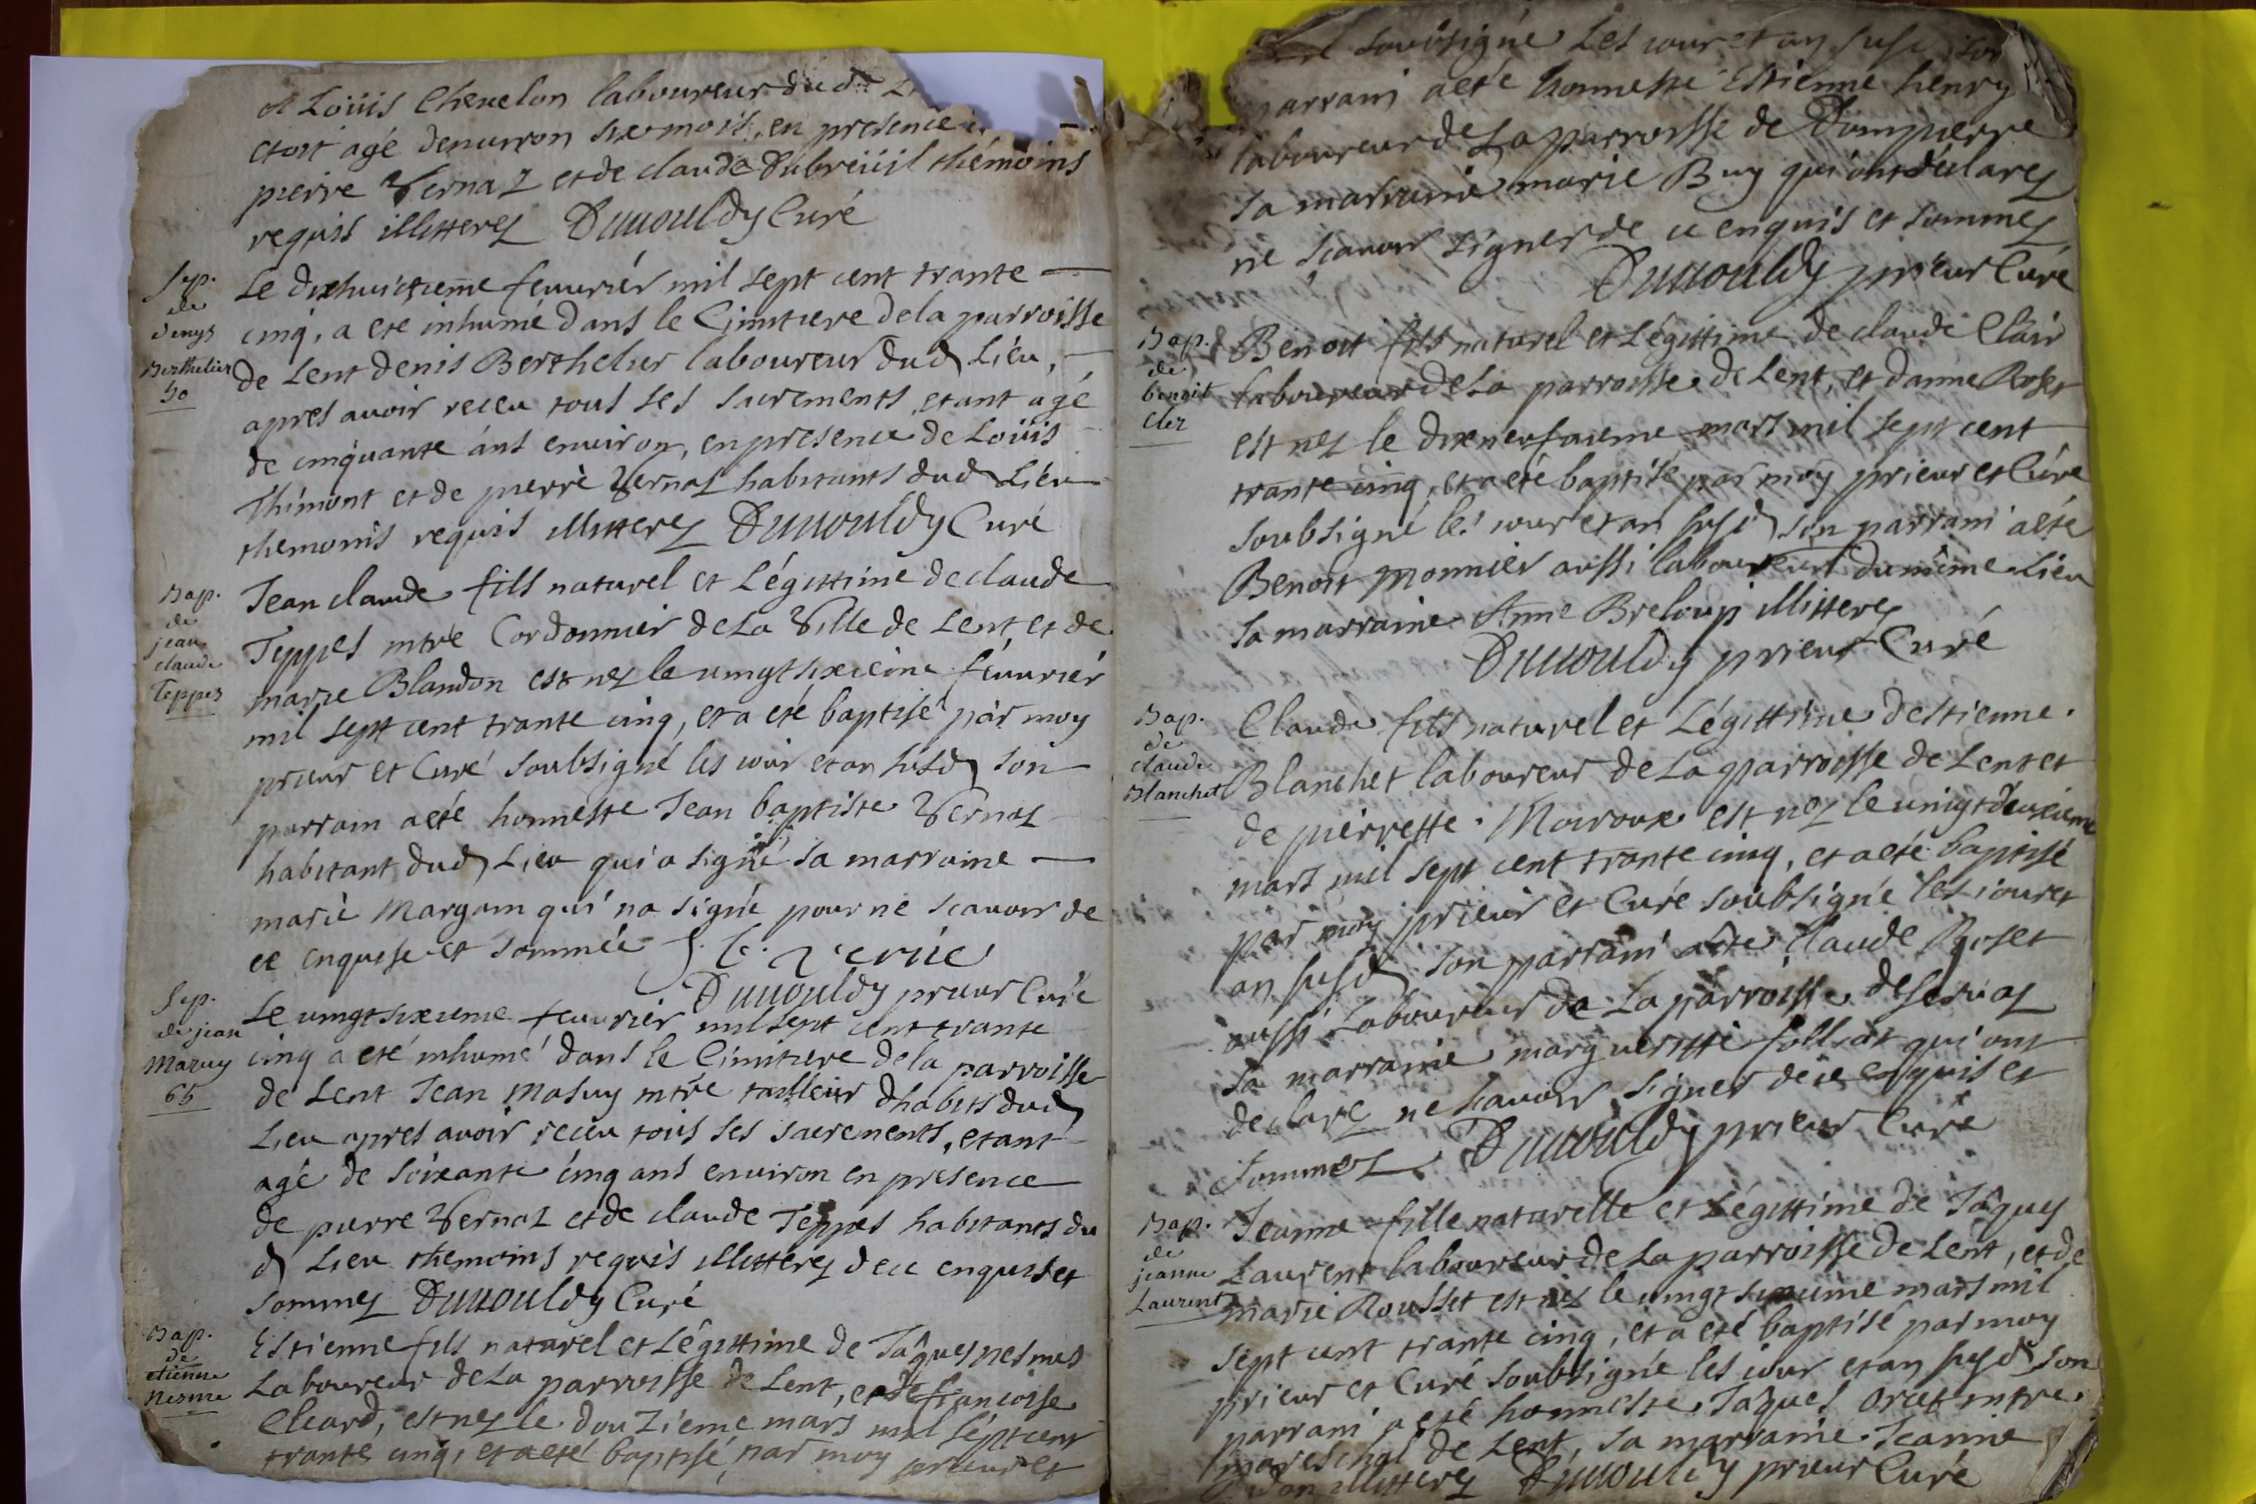 et Loüis Chevelon laboureur dud
etoit agé denuiron six mois, en presence
pierre Vernaz et de claude Dubreüil thémoins
requis illitterez Duuouldy Curé
Sep.
de
denys
Berthelier
50
Le dixhuictieme feuurier mil sept cent trante
cinq, a eté inhumé dans le Cimitiere de la parroisse
de Lent denis Berthelier laboureur dud Lieu,
apres auoir receu tous ses sacrements, etant agé
de cinquante ans enuiron, en presence de Loüis
Thimont et de pierre Vernaz habitants dud Lieu
themoins requis illitterez Duuouldy Curé
Bap.
de
jean
claude
Teppes
Jean claude fils naturel et Légittime de claude
Teppes mtre Cordonnier de La Ville de Lent et de
marie Blandon est nez le uingt sixieme féuurier
mil sept cent trante cinq, et a eté baptisé par moy
prieur et Curé soubsigné les iour et an susd son
parrain a eté honneste Jean baptiste Vernaz
habitant dud Lieu qui a signé sa marraine
marie Margain qui na signé pour ne scauoir de
ce enquise et sommée
Duuouldy prieur Curé
Sep.
de jean
Mazuy
65
Le uingt sixieme feuurier mil sept cent trante
cinq a eté inhumé dans le Cimitiere de la parroisse
de Lent Jean Masuy mtre tailleur dhabits dud
Lieu apres auoir receu tous ses sacrements, etant
agé de soixante cinq ans enuiron en presence
de pierre Vernaz et de claude Teppes habitants du
d Lieu themoins requis illitterez de ce enquis et
sommez Duuouldy Curé
Bap.
de
etienne
Nesme
Estienne fils naturel et Légittime de Jâques nesmes
Laboureur de La parroisse de Lent, et de francoise
Cleard, est nez le douzieme mars mil sept cent
trante cinq, et a eté baptisé par moy prieur et
soubsigné Les iour et an susd son
parrain a eté honneste Estienne henry
laboureur de La parroisse de Dompierre
sa marraine marie Buy qui ont déclarez
ne scauoir signer de ce enquis et sommez
Duuouldy prieur Curé
Bap.
de
benoit
Cler
Benoit fils naturel et Légittime de claude Clair
laboureur de La parroisse de Lent, et danne Roset
est nez le dixneufuieme mars mil sept cent
trante cinq, et a eté baptisé par moy prieur et Curé
soubsigné les iour et an susd son parrain a eté
Benoit monnier aussi laboureur du même Lieu
sa marraine Anne Breloup illitterez
Duuouldy prieur Curé
Bap.
de
claude
Blanchet
Claude fils naturel et Légittime destienne
Blanchet laboureur de La parroisse de Lent et
de pierrette Moiroux est nez le uingt deuxieme
mars mil sept cent trante cinq, et a eté baptisé
par moy prieur et Curé soubsigné les iour et
an susd son parrain a eté claude Roset
aussi Laboureur de La parroisse de seruaz
sa marraine margueritte folliat qui ont
declarez ne scauoir signer de ce enquis et
sommez Duuouldy prieur Curé
Bap.
de
jeanne
Laurent
Jeanne fille naturelle et Légittime de Jâques
Laurent laboureur de La parroisse de Lent, et de
marie Rousset est nez le uingt sixieme mars mil
sept cent trante cinq, et a eté baptisé par moy
prieur et Curé soubsigné les iour et an susd son
parrain a eté honneste Jaques oret mtre
mareschal de Lent, sa marraine Jeanne
illitterez Duuouldy prieur Curé